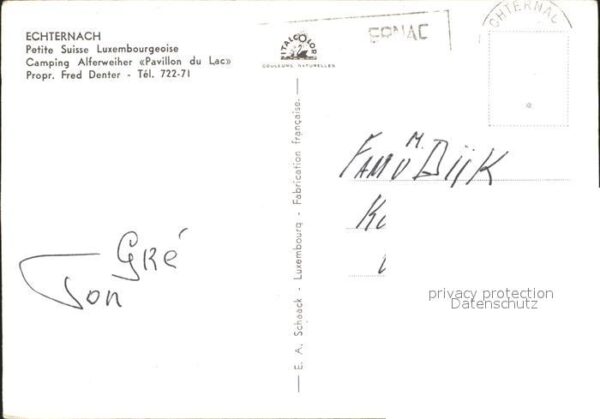 ECHTERNACH
Petite Suisse Luxembourgeoise
Camping Alferweiher «Pavillon du Lac»
Propr. Fred Denter - Tél. 722-71
ITALCOLOR
COULEURS NATURELLES
ERNAC
CHTERNAC
E. A. Schaack - Luxembourg - Fabrication française.
DIJK
GRÉ
TON
privacy protection
Datenschutz